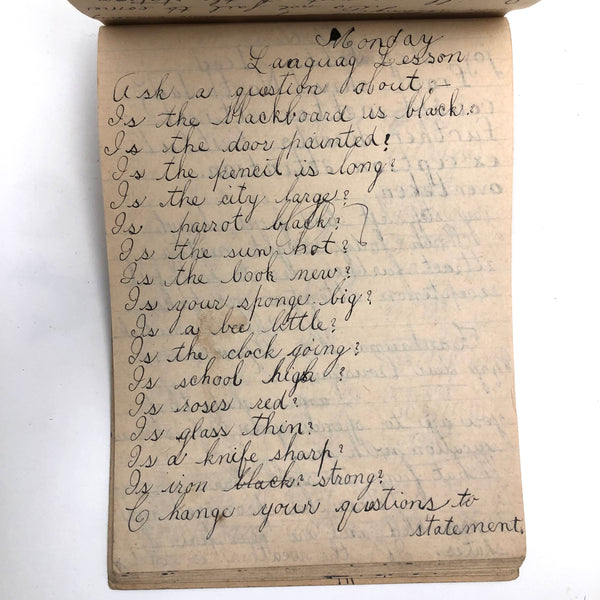 Monday
Languag Lesson
Ask a question about:-
Is the blackboard is black.
Is the door painted?
Is the pencil is long?
Is the city large?
Is parrot black?
Is the sun hot?
Is the book new?
Is your sponge big?
Is a bee little?
Is the clock going?
Is school high ?
Is roses red?
Is glass thin?
Is a knife sharp?
Is iron black? strong?
Change your quistions to
statement.